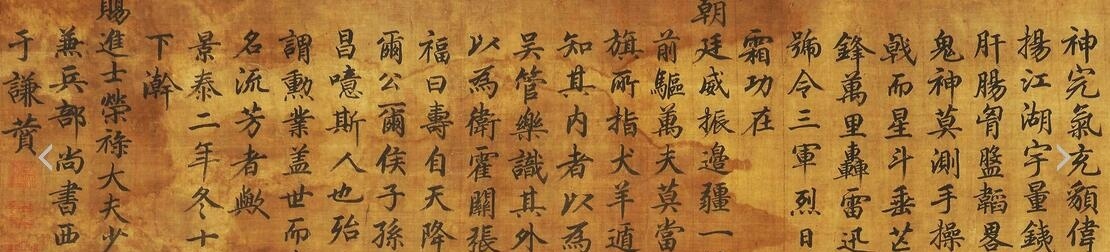 神完氣充䫉偉
揚江湖宇量銕
肝腸胷盤韜畧
鬼神莫測手操
戟而星斗垂芒
鋒萬里轟雷迅
號令三軍烈日
霜功在
朝廷威振邊疆一
前驅萬夫莫當
旗所指犬羊遁
知其内者以為
吳管樂識其外
以為衛霍關張
福曰壽自天降
爾公爾侯子孫
昌噫斯人也殆
謂勳業盖世而
名流芳者歟
景泰二年冬十
下澣
賜進士榮祿大夫少
兼兵部尚書西
于謙贊